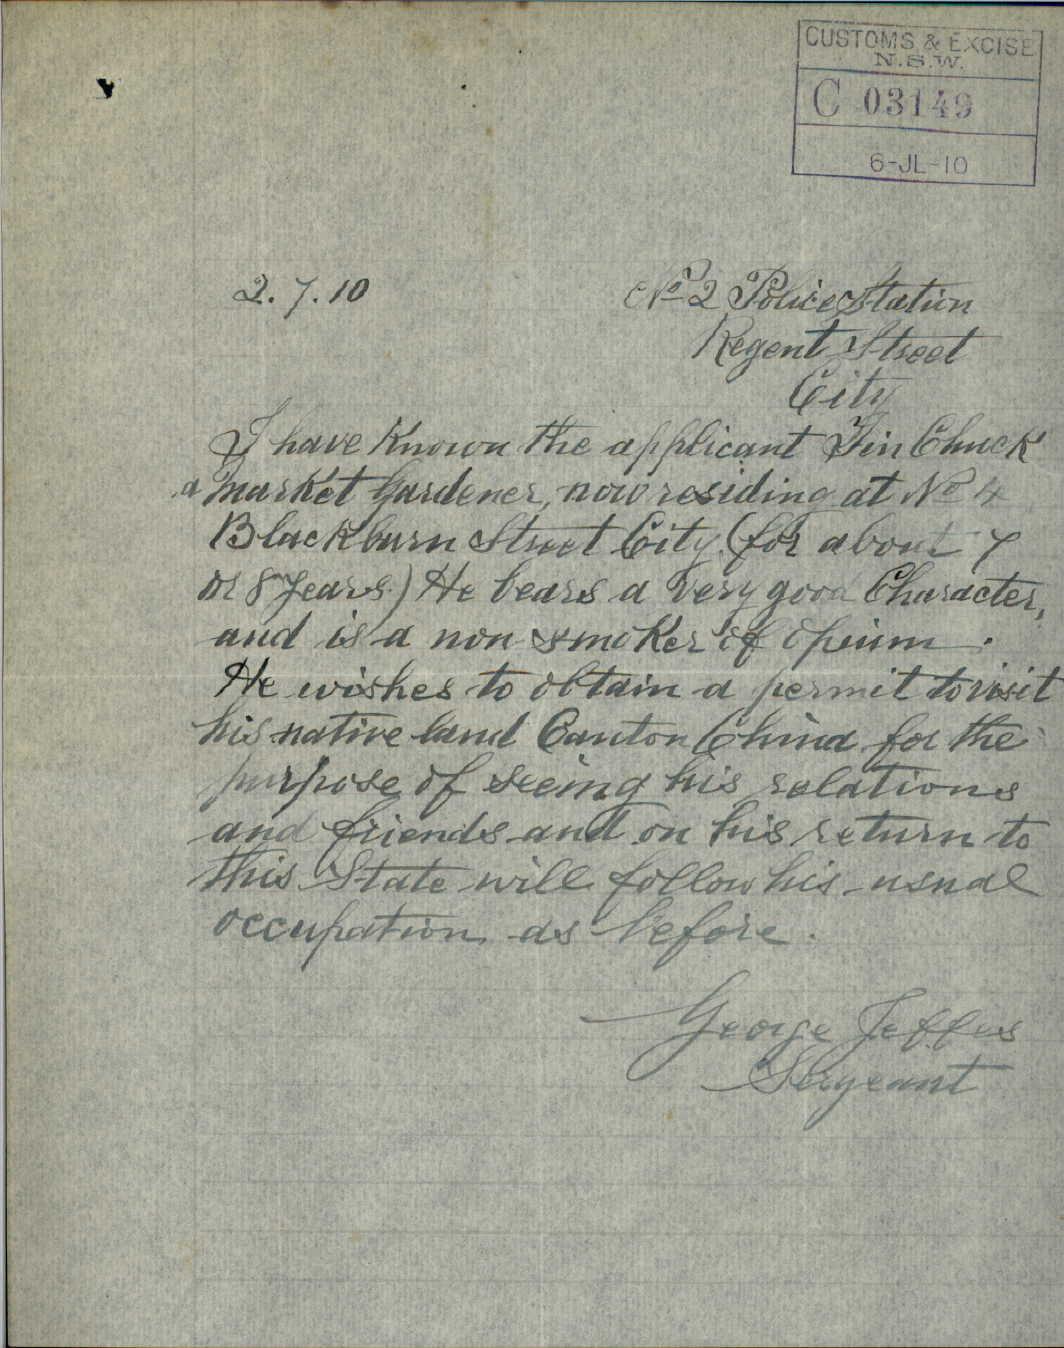 CUSTOMS & EXCISE
N.S.W.
C 03149
6-JL-10
2.7.10
No 2 Police Station
Regent Street
City
I have known the applicant Chuck
a market Gardener, now residing at No 4
Blackburn Street City (for about 7
or 8 years.) He bears a very good Character,
and is a non smoker of opium.
He wishes to obtain a permit to visit
his native land Canton China for the
purpose of seeing his relations
and friends and on his return to
this State will follow his usual
occupation as before.
George
Sergeant